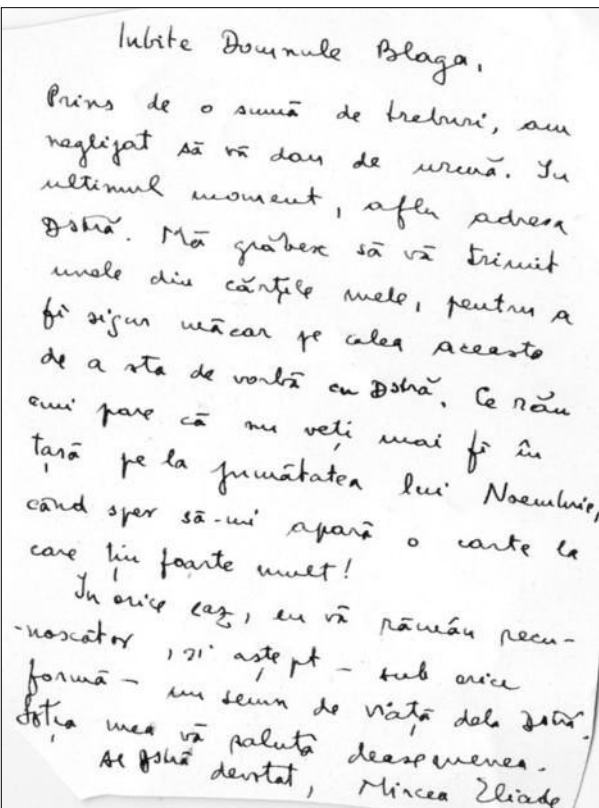 Iubite Domnule Blaga,
Prins de o sumă de treburi, am
neglijat să vă dau de urmă. In
ultimul moment, aflu adresa
Dstră. Mă grăbesc să vă trimit
unele din cărțile mele, pentru a
fi sigur măcar pe calea aceasta
de a sta de vorbă cu Dstră. Ce rău
îmi pare că nu veți mai fi în
țară pe la jumătatea lui Noembrie,
când sper să-mi apară o carte la
care țin foarte mult!
In orice caz, eu vă rămân recu-
-noscător, și aștept – sub orice
formă – un semn de viață dela Dstră.
Soția mea vă salută deasemenea.
Al Dstră devotat, Mircea Eliade